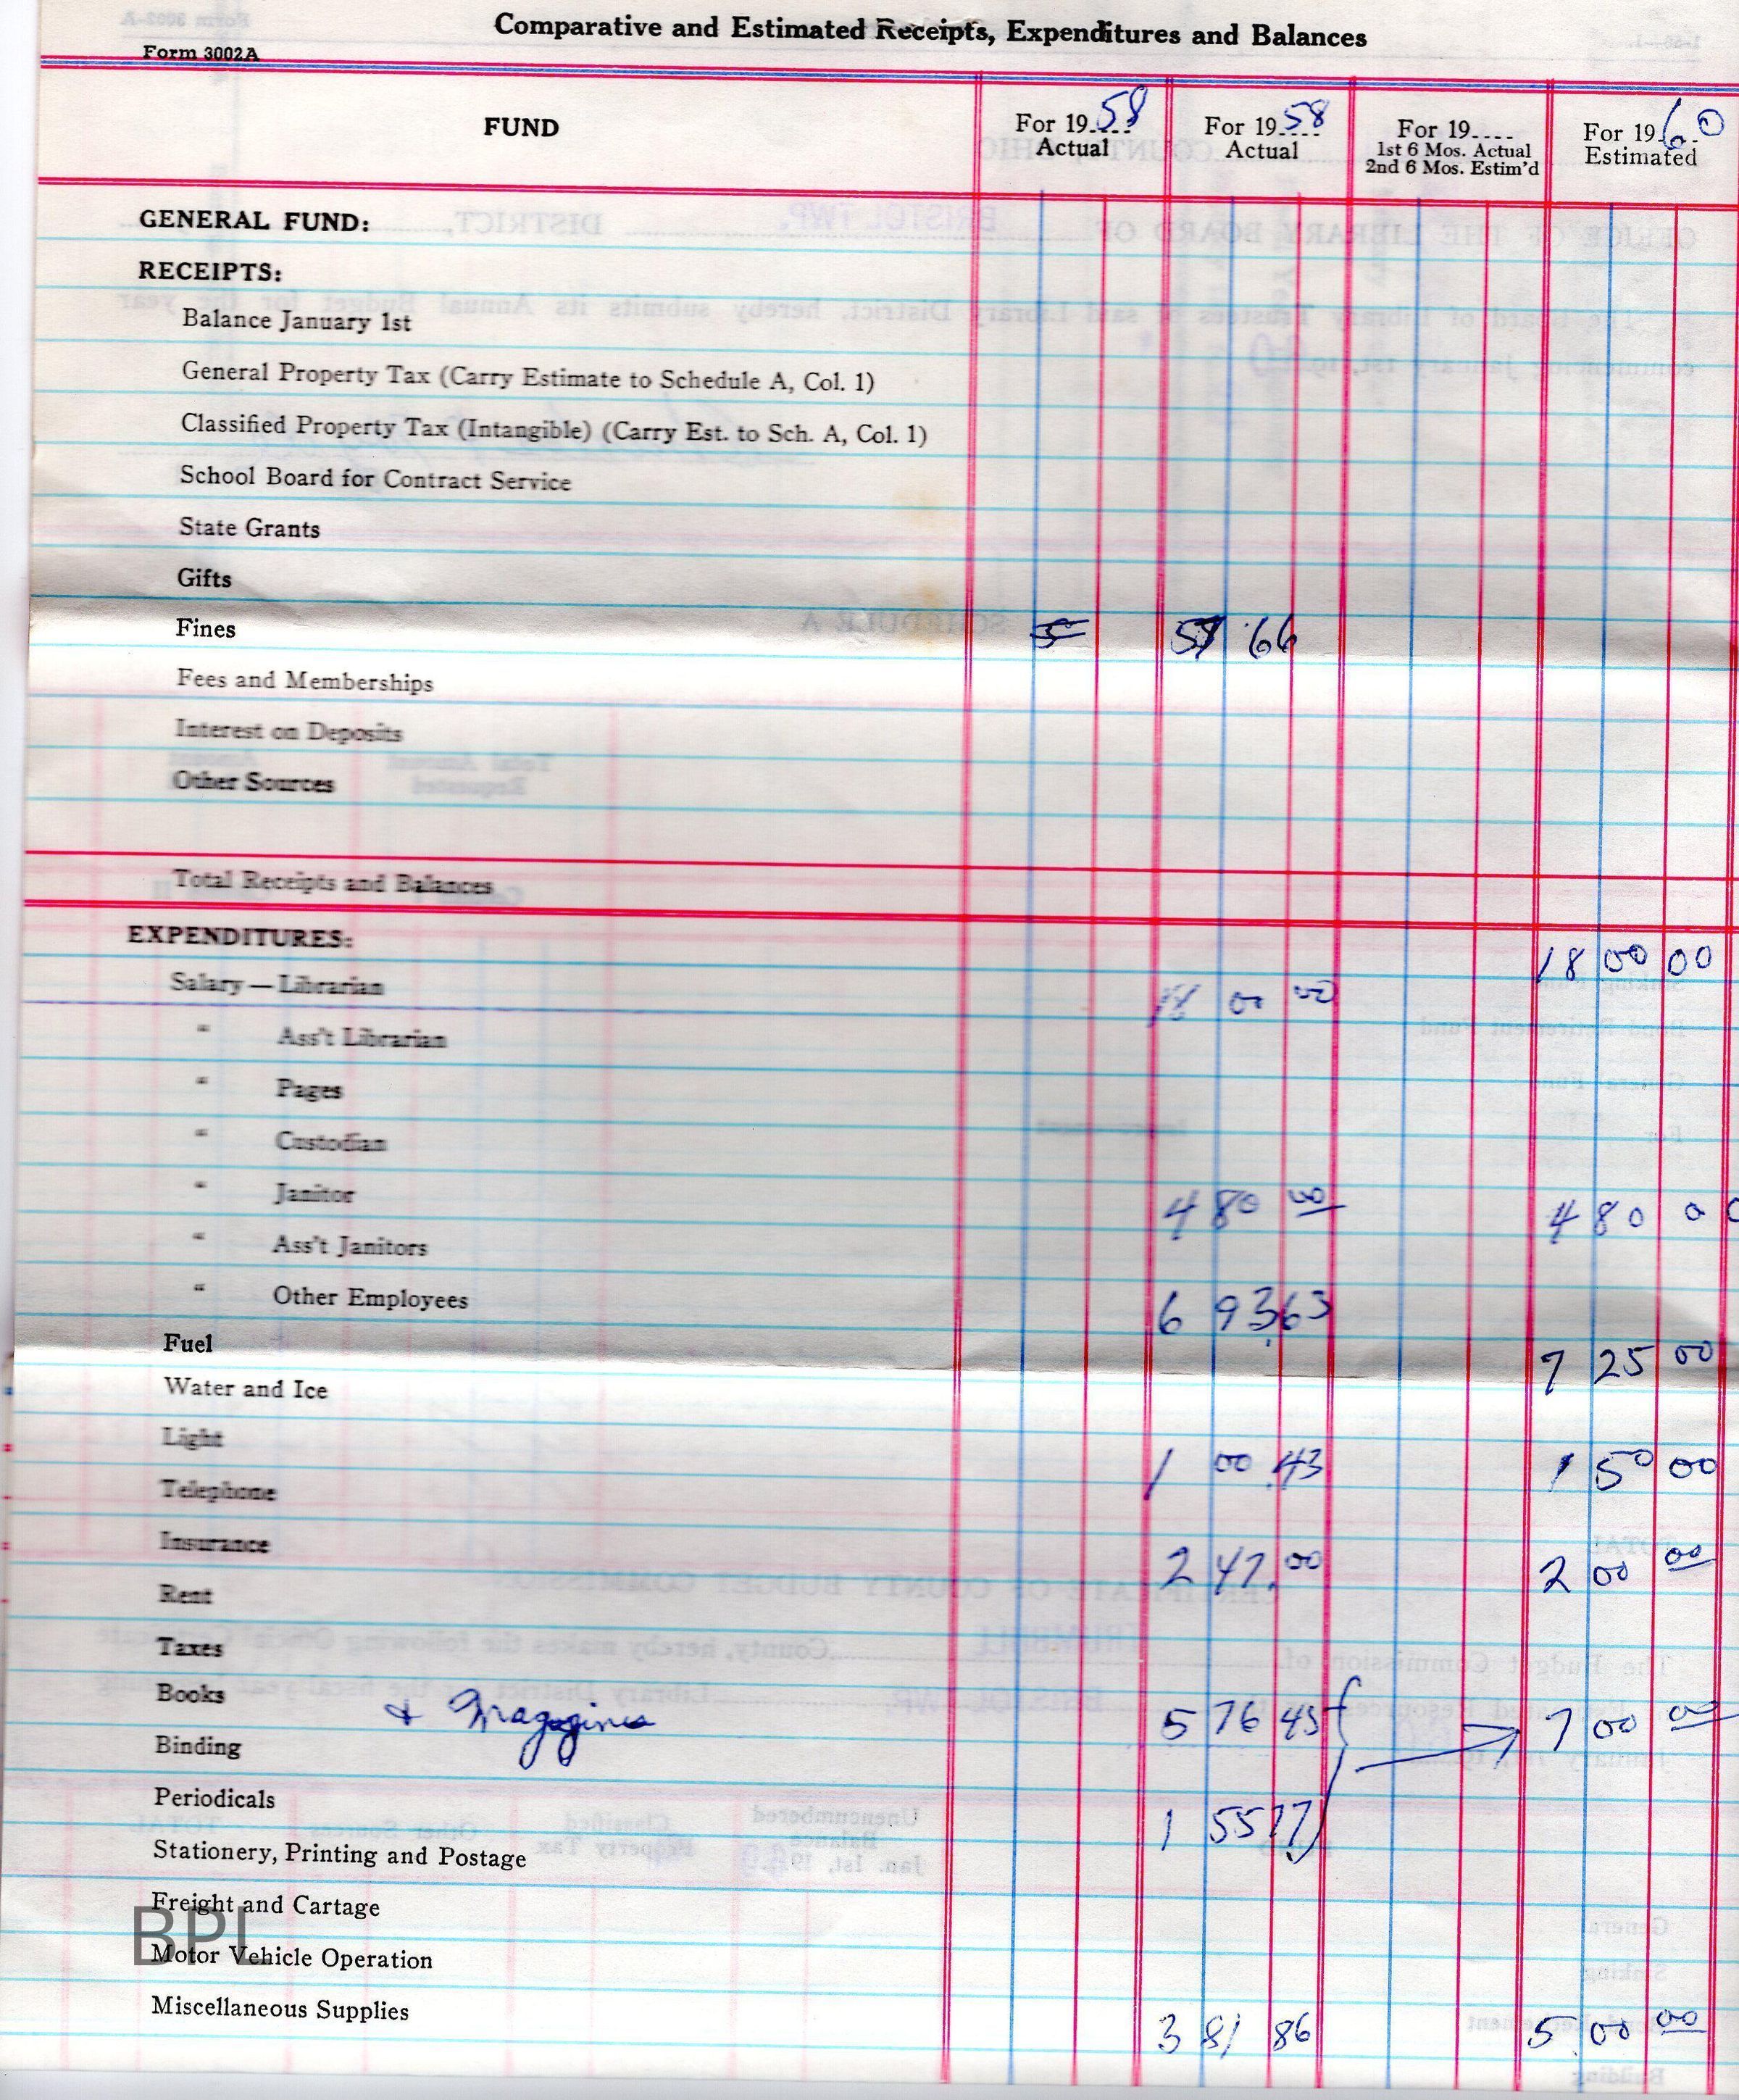 Comparative and Estimated Receipts, Expenditures and Balances
Form 3002A
FUND
For 1958 Actual
For 1958 Actual
For 19.... 1st 6 Mos. Actual 2nd 6 Mos. Estim'd
For 1960 Estimated
GENERAL FUND:
RECEIPTS:
Balance January 1st
General Property Tax (Carry Estimate to Schedule A, Col. 1)
Classified Property Tax (Intangible) (Carry Est. to Sch. A, Col. 1)
School Board for Contract Service
State Grants
Gifts
Fines 66
Fees and Memberships
Interest on Deposits
Other Sources
Total Receipts and Balances
EXPENDITURES:
18 00 00
Salary — Librarian 18 00 00
" Ass't Librarian
" Pages
" Custodian
" Janitor 4 80 00 4 80 00
" Ass't Janitors
" Other Employees 6 93 63
Fuel 7 25 00
Water and Ice
Light 1 00 43 1 50 00
Telephone
Insurance 2 47.00 2 00 00
Rent
Taxes
Books & Magazines 5 76 45 7 00 00
Binding
Periodicals 1 55 77
Stationery, Printing and Postage
Freight and Cartage
BPL
Motor Vehicle Operation
Miscellaneous Supplies 3 81 86 5 00 00